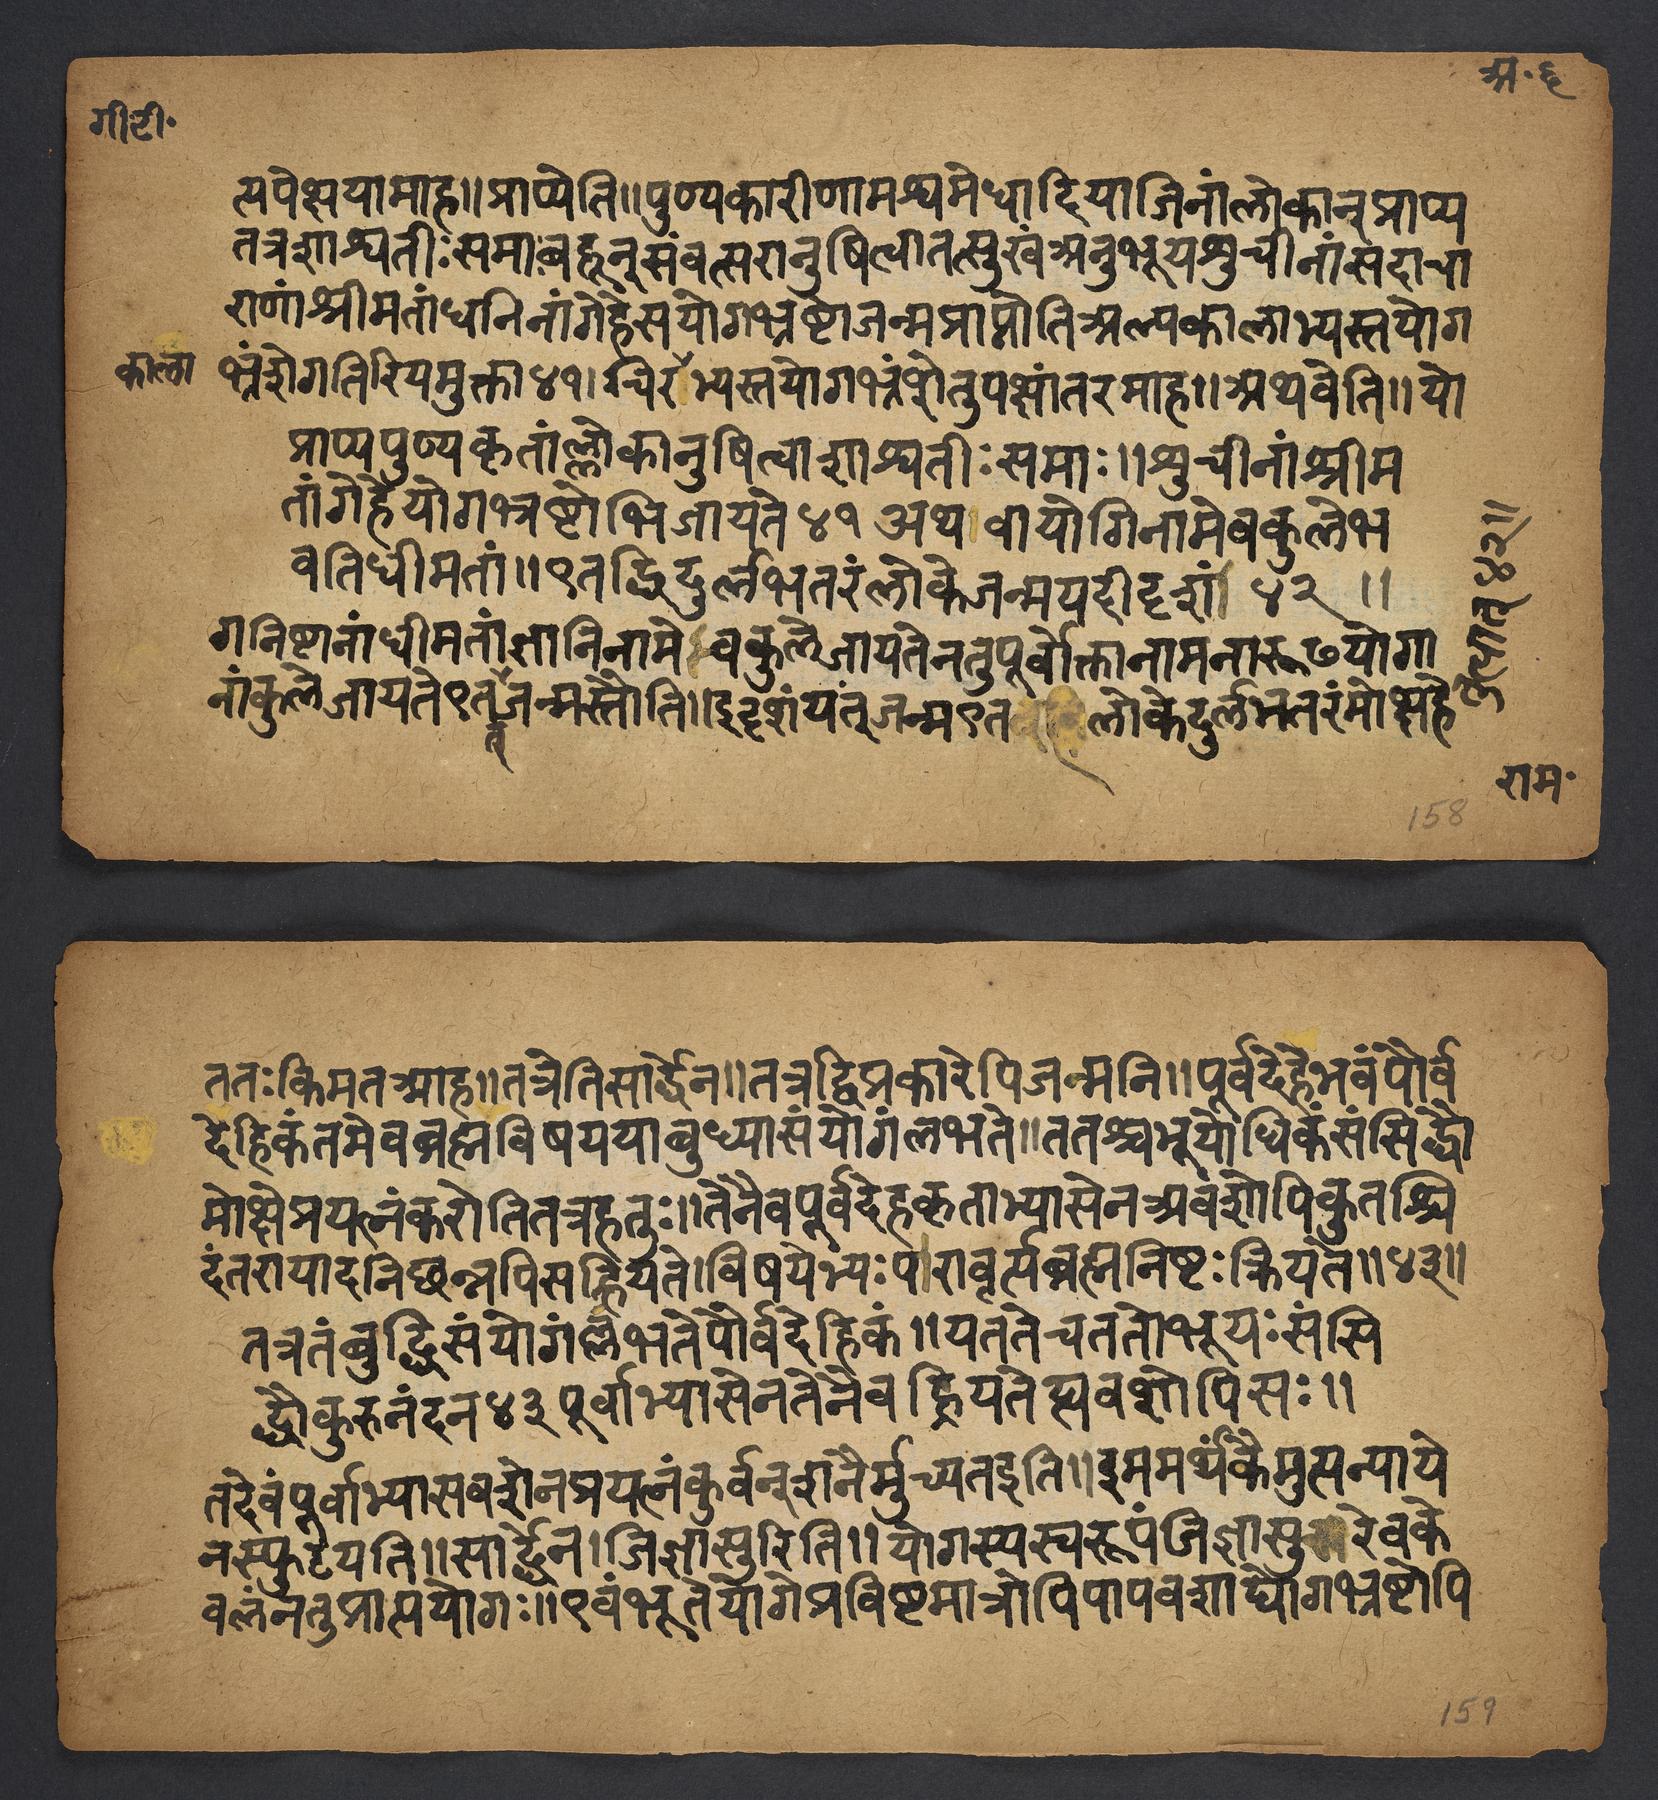 अ॰६
गी॰टी॰
त्यपेक्षयामाह॥प्राप्येति॥पुण्यकारीणामश्वमेधादियाजिनांलोकान्प्राप्य
तत्रशाश्वतीःसमाबहून्संवत्सरानुषित्वातत्सुखंअनुभूयशुचीनांसदाचा
राणांश्रीमतांधनिनांगेहेसयोगभ्रष्टोजन्मप्राप्नोतिअल्पकालाभ्यस्तयोग
काला भ्रंशेगतिरियमुक्ता४१।चिरभ्यस्तयोगभ्रंशेतुपक्षांतरमाह॥अथवेति॥यो
प्राप्यपुण्यकृतांल्लोकानुषित्वाशाश्वतीःसमाः॥शुचीनांश्रीम
तांगेहेयोगभ्रष्टोभिजायते४१अथवायोगिनामेवकुलेभ
वतिधीमतां॥एतद्धिदुर्लभतरंलोकेजन्मयदीदृशां ४२॥
गनिष्टानांधीमतांज्ञानिनामेवकुलेजायतेनतुपूर्वोक्तानामनारूढयोगा
नांकुलेजायतेएतजन्मस्तौति॥इदृशंयंत्जन्मएतलोकेदुर्लभतरंमोक्षहे
त्
तुत्वात्४२॥
राम॰
158
ततःकिमतआह॥तत्रेतिसार्द्धेन॥तत्रद्विप्रकारेपिजन्मनि॥पूर्वदेहेभवंपौर्व
देहिकंतमेवब्रह्मविषययाबुध्यासंयोगंलभते॥ततश्चभूयोधिकंसंसिद्धौ
मोक्षेप्रयत्नंकरोतितत्रहेतुः॥तेनैवपूर्वदेहकृताभ्यासेनअवशोपिकुतश्चि
दंतरायादनिछन्नपिसह्रियते।विषयेभ्यःपरावृर्त्यब्रह्मनिष्टःक्रियते॥४३॥
तत्रतंबुद्धिसंयोगंल्लभतेपौर्वदेहिकं॥यततेचततोभूयःसंसि
द्धौकुरुनंदन४३पूर्वाभ्यासेनतेनैवह्रियतेह्यवशोपिसः॥
तदेवंपूर्वाभ्यासवशेनप्रयत्नंकुर्वन्शनैर्मुच्यतइति॥इममर्थंकैमुत्यन्याये
नस्फुटयति॥सार्द्धेन।जिज्ञासुरिति॥योगस्यस्वरूपंजिज्ञासुरेवके
वलंनतुप्राप्तयोगः॥एवंभूतयोगेप्रविष्टमात्रोपिपापवशाद्योगभ्रष्टोपि
159